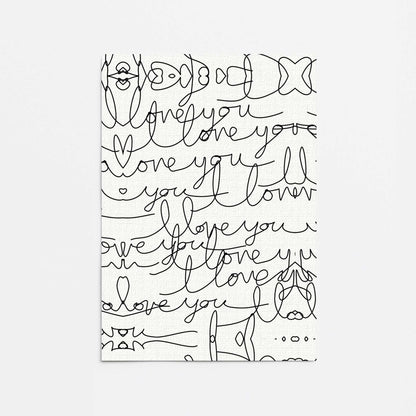 love you
I love yove
love you
you I love
I love you
love you love you
I love
love you I
you